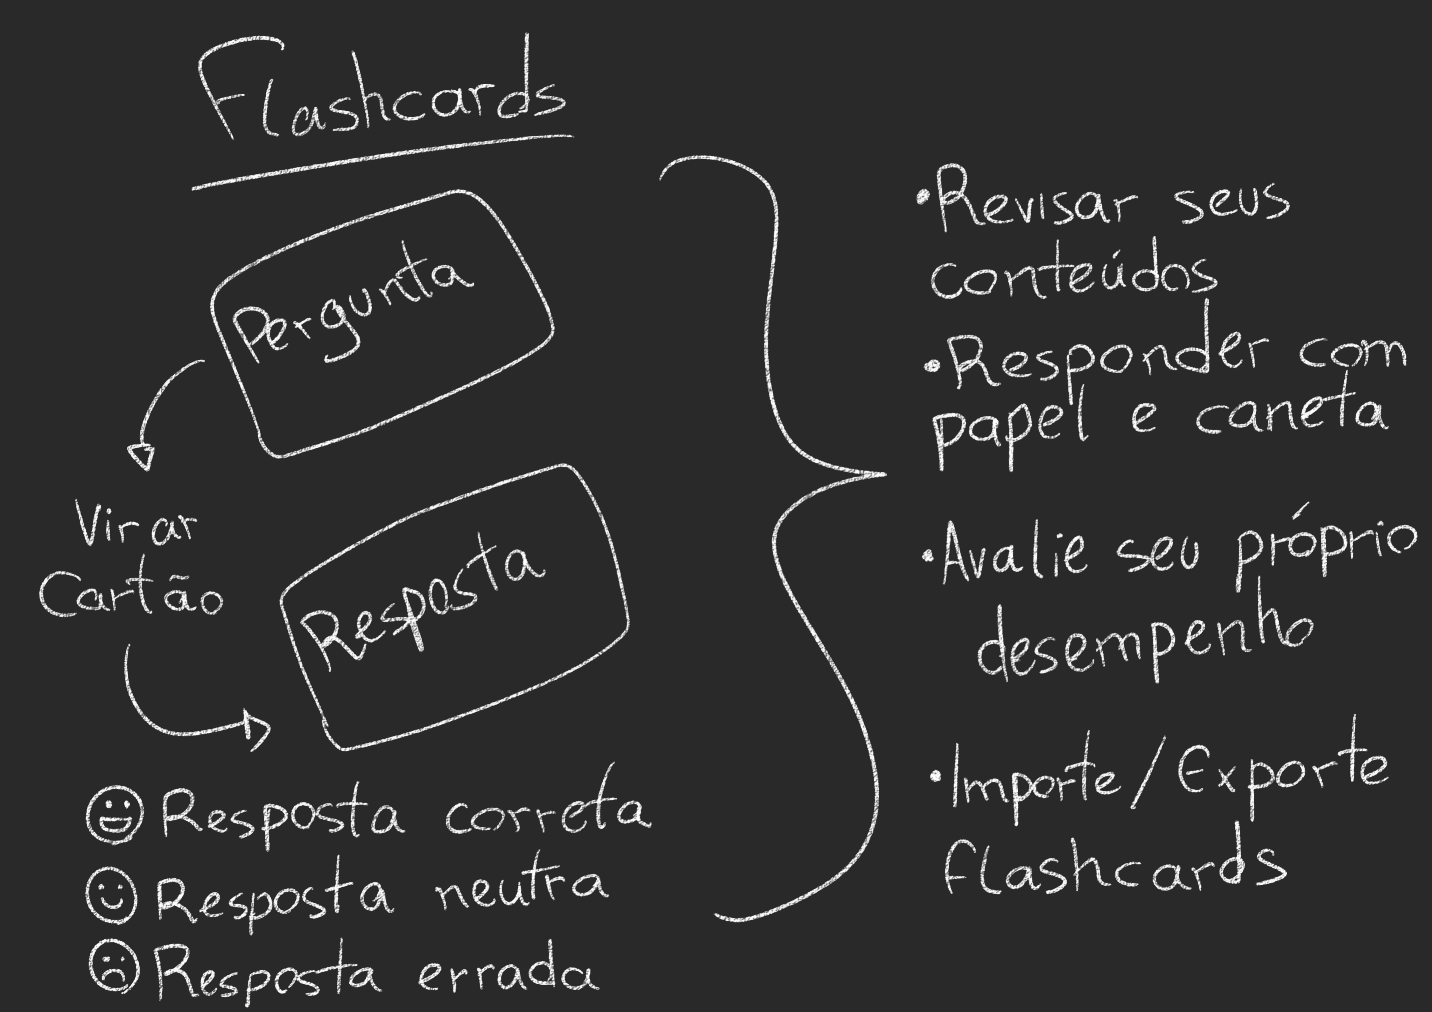 Flashcards
Pergunta
Virar
Cartão
Resposta
Resposta correta
Resposta neutra
Resposta errada
•Revisar seus
conteúdos
•Responder com
papel e caneta
•Avalie seu próprio
desempenho
•Importe/Exporte
flashcards